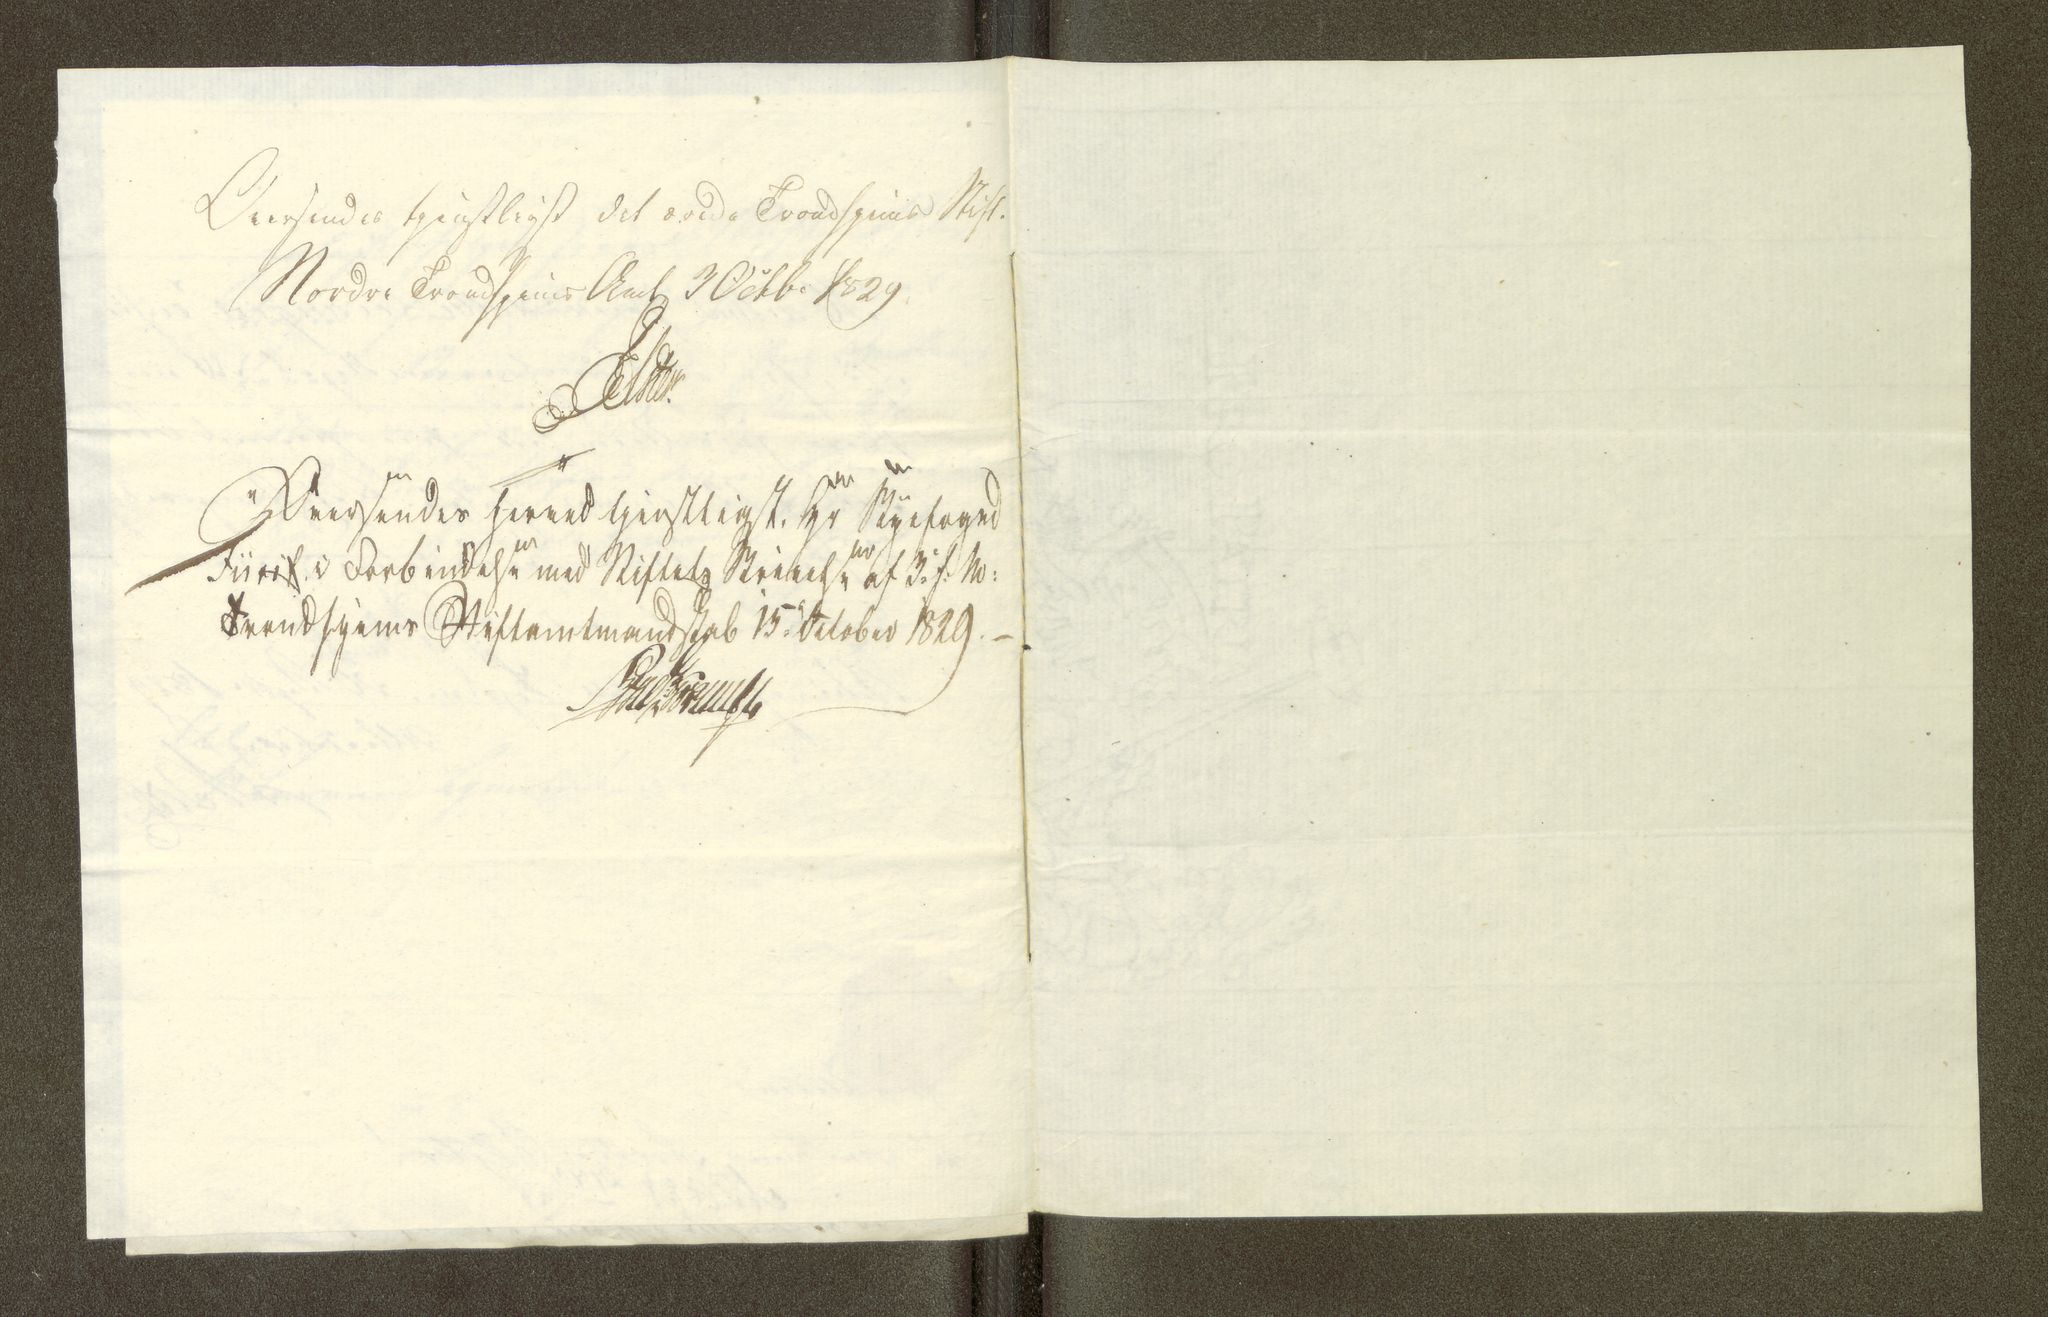 Oversendes tjenstligst det ærede Trondhjems Stift.
Nordre Trondhjems Amt 3 Octbr 1829.
Oversendes herved tjenstligst Hr Byefoged
i Forbindelse med Stiftets Skrivelse af 3. f. M:
Trondhjems Stiftamtmandskab 15 October 1829. –